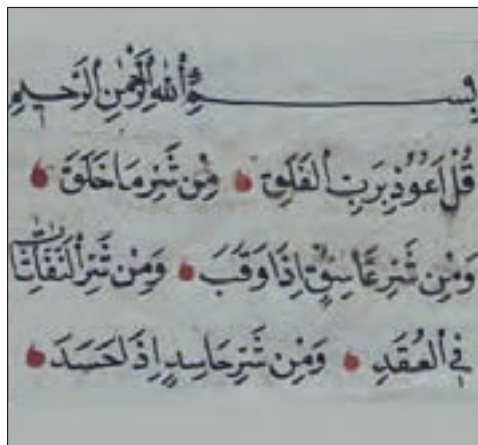 بِسْمِ ٱللَّهِ ٱلرَّحْمٰنِ ٱلرَّحِيمِ
قُلْ اَعُوذُ بِرَبِّ ٱلْفَلَقِ مِنْ شَرِّ مَا خَلَقَ
وَمِنْ شَرِّ غَاسِقٍ اِذَا وَقَبَ وَمِنْ شَرِّ ٱلنَّفَّاثَاتِ
فِي ٱلْعُقَدِ وَمِنْ شَرِّ حَاسِدٍ اِذَا حَسَدَ